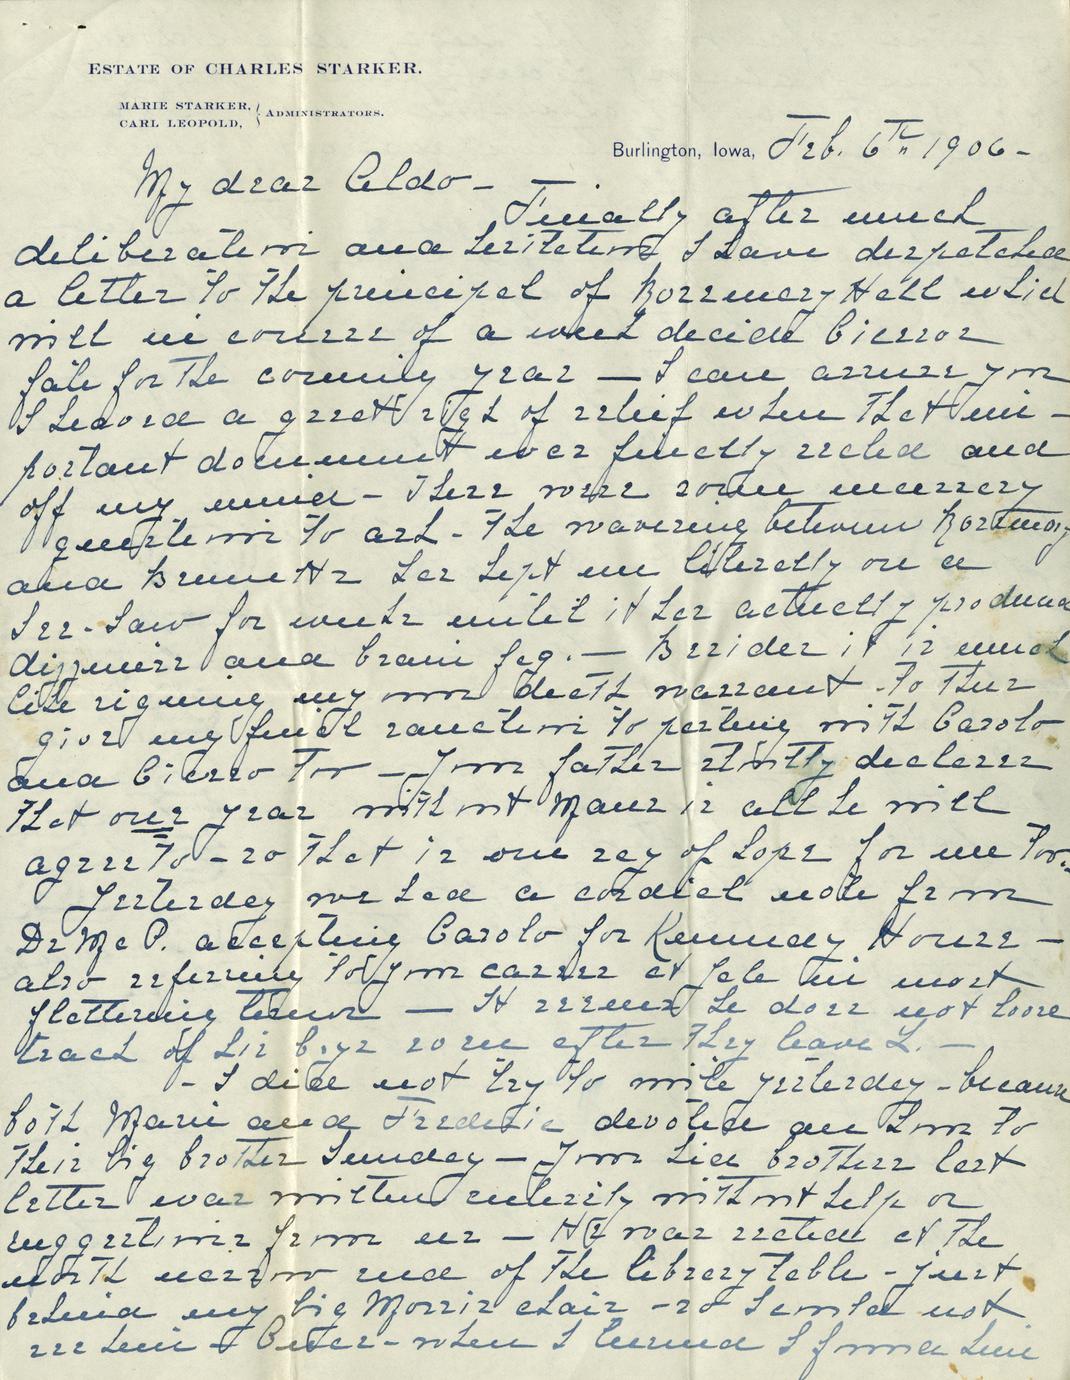 ESTATE OF CHARLES STARKER.
MARIE STARKER,
CARL LEOPOLD, } ADMINISTRATORS.
Burlington, Iowa, Feb. 6th 1906-
My dear Aldo-
Finally after much
deliberation and hesitation I have despatched
a letter to the principal of Rosemary Hall which
will in course of a week decide
fate for the coming year — I can assure you
I heaved a great sigh of relief when that im-
portant document was finally sealed and
off my mind - There were some necessary
questions to ask - The wavering between Rosemary
and has kept me literally on a
See-Saw for weeks until it has actually produced
and brain fag. — Besides it is much
like signing my own death warrant - to thus
give my final sanction to parting with Carolo
and too — Your father stoutly declares
that one year without Mama is all he will
agree to - so that is one ray of hope for me too.
Yesterday we had a cordial note from
Dr McP. accepting Carolo for Kennedy House —
also referring to your career at Yale in most
flattering terms — It seems he does not loose
track of his boys soon after they leave L. —
- I did not try to write yesterday - because
both Marie and Frederic devoted an hour to
their big brother Sunday — Your kid brothers last
letter was written entirely without help or
suggestions from us — He was seated at the
north narrow end of the library table - just
behind my big Morris chair - so I could not
see him - when I turned I found him